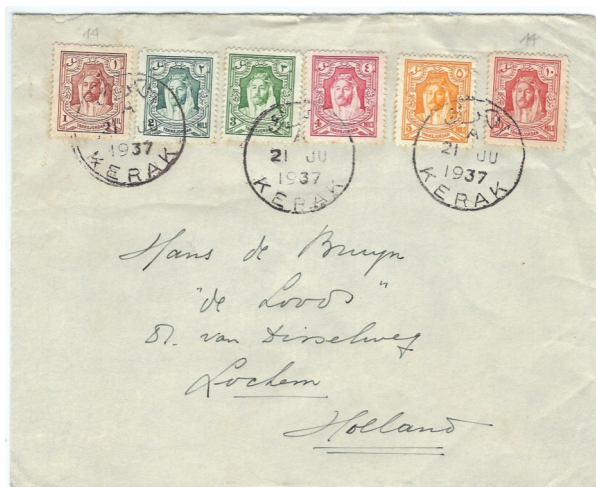 14 14
١ ٢ ٣ ٤ ٥ ١٠
1 2 3
21 JU
1937
KERAK
21 JU
1937
KERAK
21 JU
1937
KERAK
Hans de Bruyn
"de Loods"
81. van Disselweg
Lochem
Holland